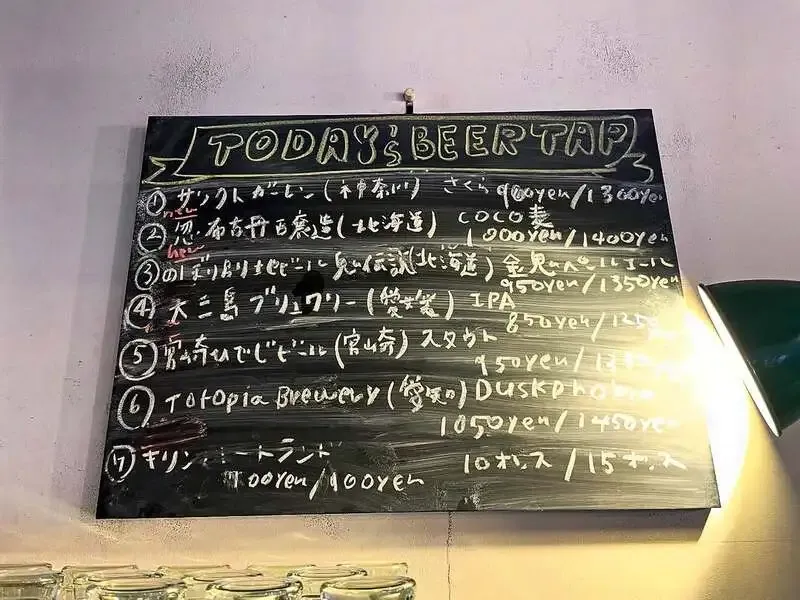 TODAY's BEER TAP
① サンクトガーレン (神奈川) さくら 900yen/1300yen
new
② 忽布古丹醸造 (北海道) COCO麦
1000yen/1400yen
new
③ のぼりべつ地ビール 鬼伝説 (北海道) 金鬼ペールエール
950yen/1350yen
④ 大三島ブリュワリー (愛媛) IPA
850yen/125
⑤ 宮崎ひでじビール (宮崎) スタウト
950yen/
⑥ Totopia Brewery (愛知) Duskpho
1050yen/1450yen
⑦ キリン ートランド 10オンス/15オンス
700yen/900yen